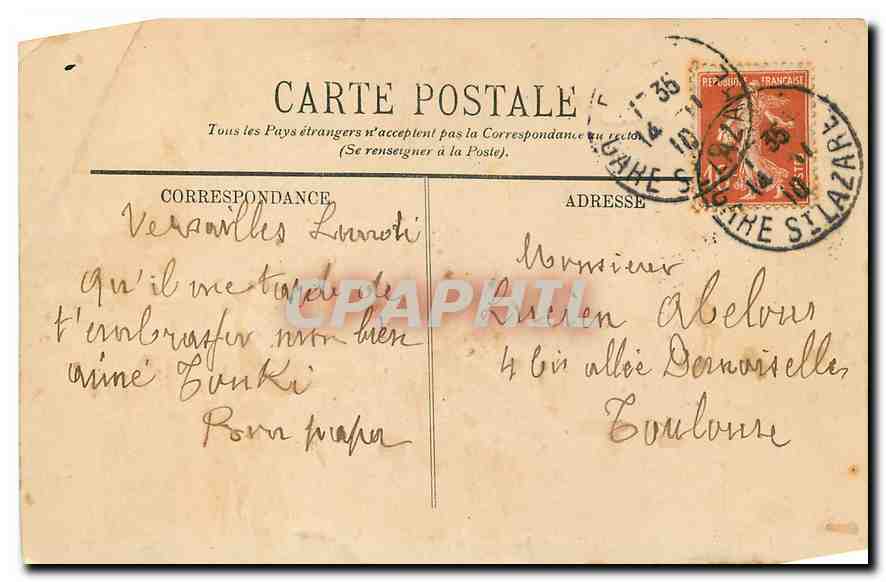 CARTE POSTALE
Tous les Pays étrangers n'acceptent pas la Correspondance au recto
(Se renseigner à la Poste).
CORRESPONDANCE
ADRESSE
REPUBLIQUE FRANÇAISE
POSTES
GARE ST LAZARE
1 35
14 11
10
GARE ST LAZARE
1 35
14 11
10
Versailles Lundi
qu'il me tarde de
t'embrasser mon bien
aimé Touki
Bon papa
Monsieur
Lucien Abelous
4 bis allée Demoiselles
Toulouse
CPAPHIL